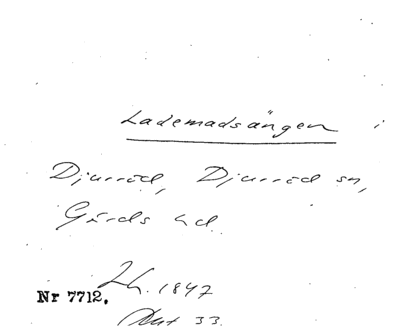 Lademadsängen i
Djurröd, Djurröd sn,
Gärds hd.
Lh. 1847
Nr 7712.
Akt 33.